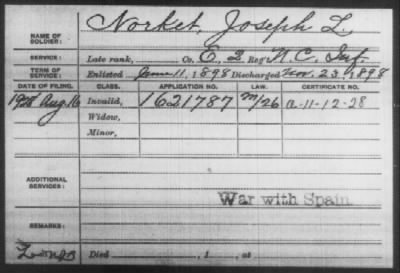 NAME OF SOLDIER: Norket, Joseph L.
SERVICE: Late rank, Co. E, 2 Reg't N.C. Inf.
TERM OF SERVICE: Enlisted June 11, 1898 Discharged Nov. 23, 1898
DATE OF FILING. CLASS. APPLICATION NO. LAW. CERTIFICATE NO.
1928 Aug. 16 Invalid, 1621787 M/26 a-11-12-28
Widow,
Minor,
ADDITIONAL SERVICES:
War with Spain
REMARKS:
Died , 1 , at